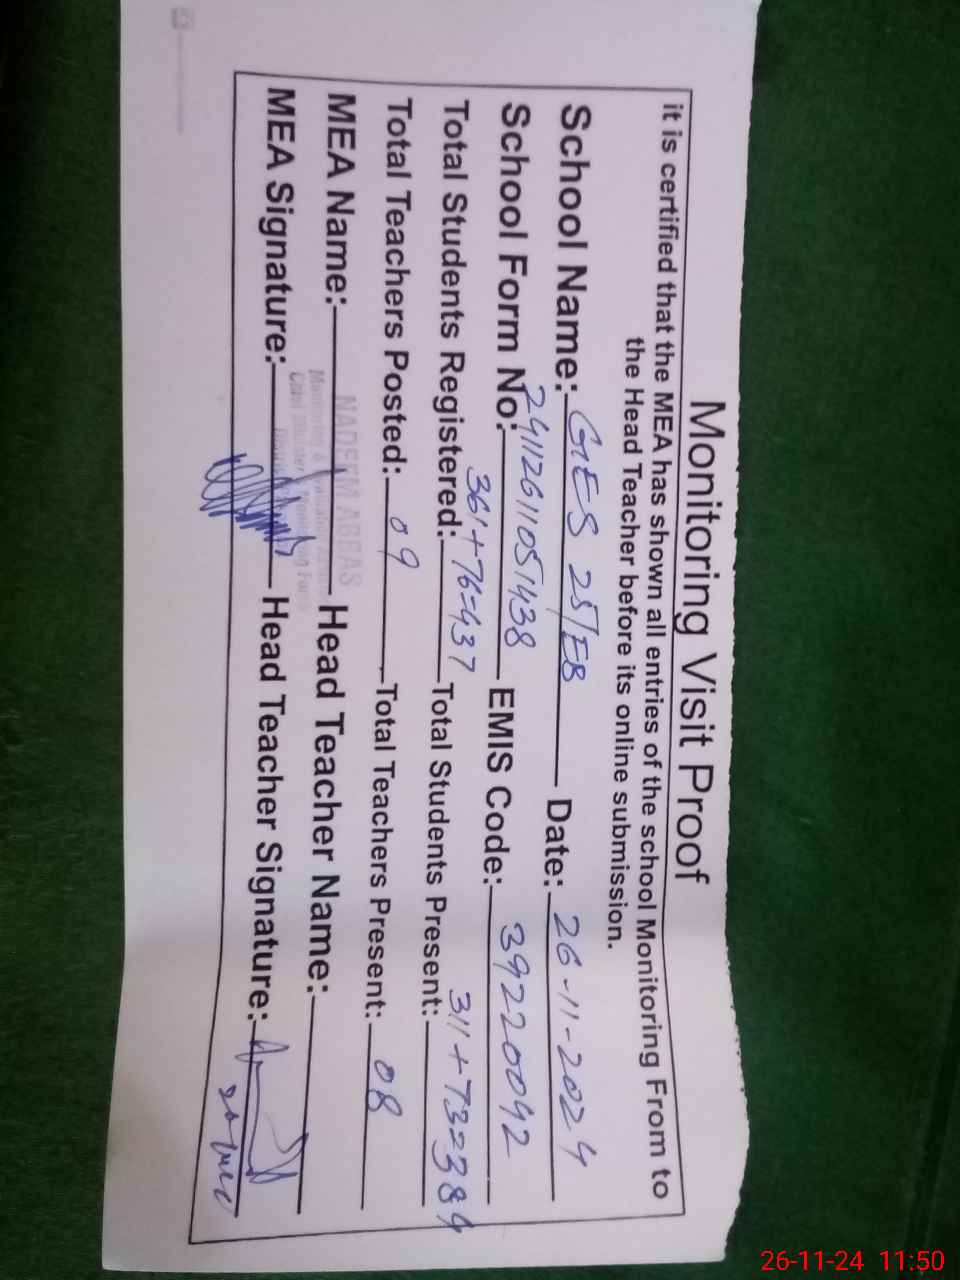 Monitoring Visit Proof
it is certified that the MEA has shown all entries of the school Monitoring From to
the Head Teacher before its online submission.
School Name: GES 25/EB Date: 26-11-2024
School Form No: 24112611051438 EMIS Code: 39220092
Total Students Registered: 361+76=437 Total Students Present: 311+73=384
Total Teachers Posted: 09 Total Teachers Present: 08
MEA Name: NADEEM ABBAS Head Teacher Name:
Monitoring &
MEA Signature: Head Teacher Signature:
26-11-24 11:50